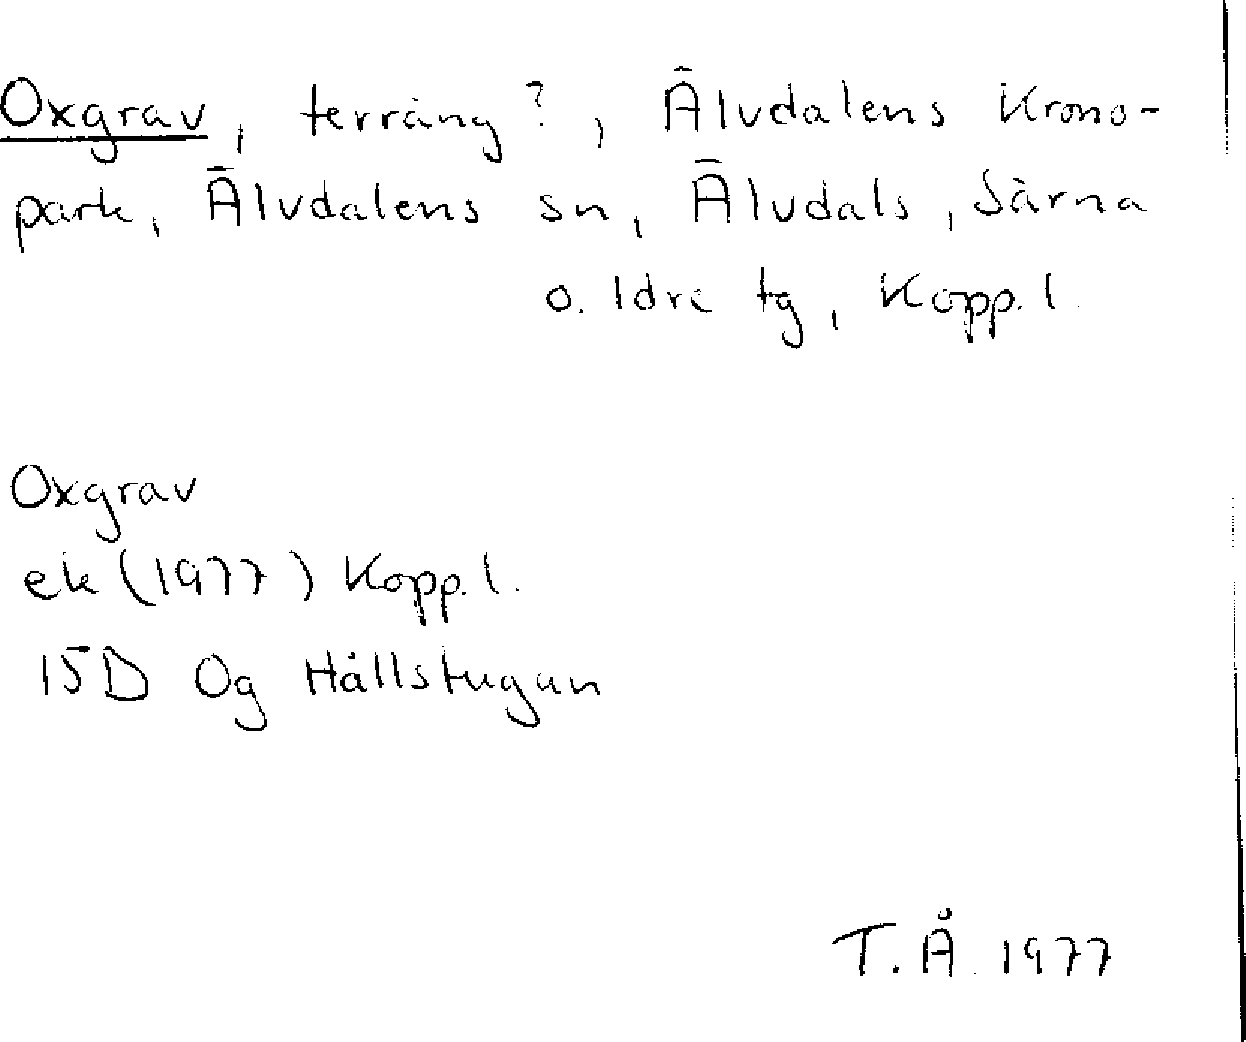 Oxgrav, terräng?, Älvdalens Krono-
park, Älvdalens sn, Älvdals, Särna
o. Idre tg, Kopp. l.
Oxgrav
ek (1977) Kopp. l.
15D 0g Hållstugan
T. Å. 1977